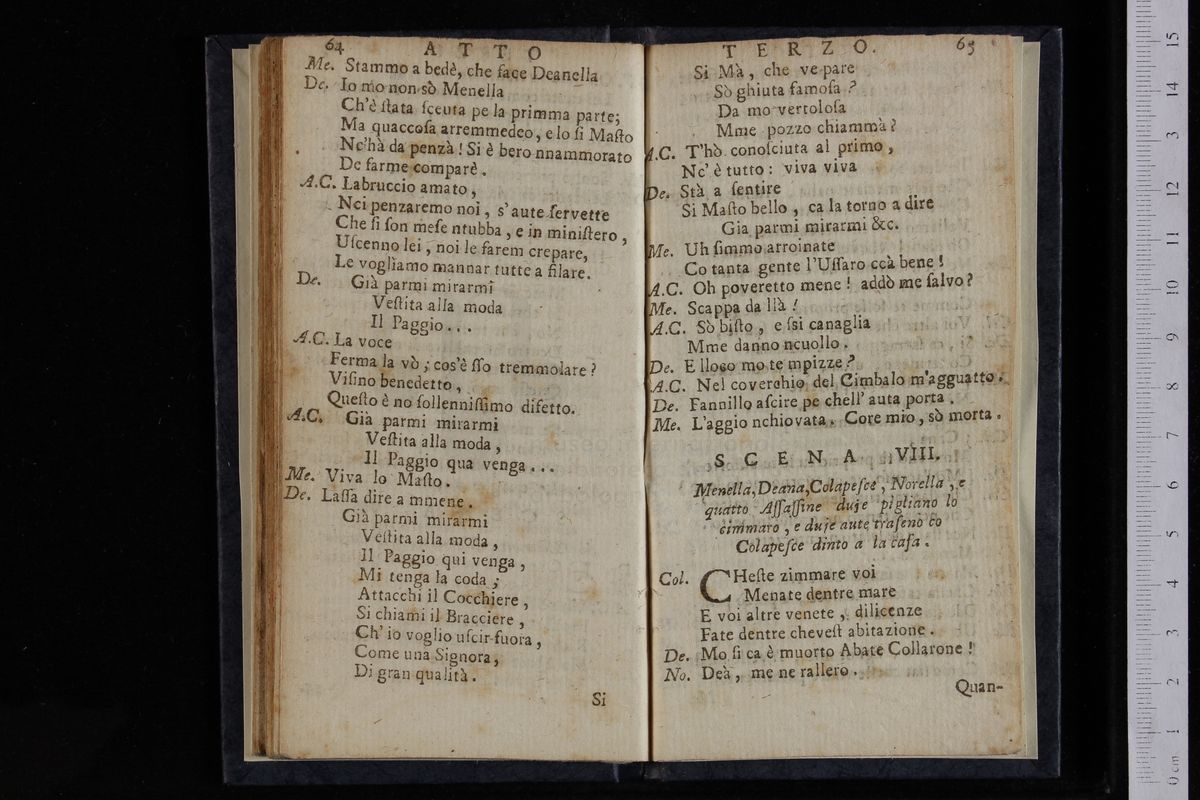 64 ATTO
Me. Stammo a bedè, che face Deanella
De. Io mo non sò Menella
Ch'è ſtata ſceuta pe la primma parte;
Ma quaccoſa arremmedeo, e lo ſi Maſto
Nc'hà da penzà! Si è bero nnammorato
De farme comparè.
A.C. Labruccio amato,
Nci penzaremo noi, s'aute ſervette
Che ſi ſon meſe ntubba, e in miniſtero,
Uſcenno lei, noi le farem crepare,
Le vogliamo mannar tutte a filare.
De. Già parmi mirarmi
Veſtita alla moda
Il Paggio...
A.C. La voce
Ferma la vò; cos'è ſſo tremmolare?
Viſino benedetto,
Queſto è no ſollenniſſimo difetto.
A.C. Già parmi mirarmi
Veſtita alla moda,
Il Paggio qua venga...
Me. Viva lo Maſto.
De. Laſſa dire a mmene.
Già parmi mirarmi
Veſtita alla moda,
Il Paggio qui venga,
Mi tenga la coda;
Attacchi il Cocchiere,
Si chiami il Bracciere,
Ch'io voglio uſcir fuora,
Come una Signora,
Di gran qualità.
Si
TERZO. 65
Si Mà, che ve pare
Sò ghiuta famoſa?
Da mo vertoloſa
Mme pozzo chiammà?
A.C. T'hò conoſciuta al primo,
Nc'è tutto: viva viva
De. Stà a ſentire
Si Maſto bello, ca la torno a dire
Gia parmi mirarmi &c.
Me. Uh ſimmo arroinate
Co tanta gente l'Uſſaro ccà bene!
A.C. Oh poveretto mene! addò me ſalvo?
Me. Scappa da llà!
A.C. Sò biſto, e ſsi canaglia
Mme danno ncuollo.
De. E lloco mo te mpizze?
A.C. Nel coverchio del Cimbalo m'agguatto.
De. Fannillo aſcire pe chell'auta porta.
Me. L'aggio nchiovata. Core mio, sò morta.
SCENA VIII.
Menella, Deana, Colapeſce, Norella, e
quatto Aſſaſſine duje pigliano lo
cimmaro, e duje aute traſeno co
Colapeſce dinto a la caſa.
Col. CHeſte zimmare voi
Menate dentre mare
E voi altre venete, dilicenze
Fate dentre cheveſt abitazione.
De. Mo ſi ca è muorto Abate Collarone!
No. Deà, me ne rallero.
Quan-